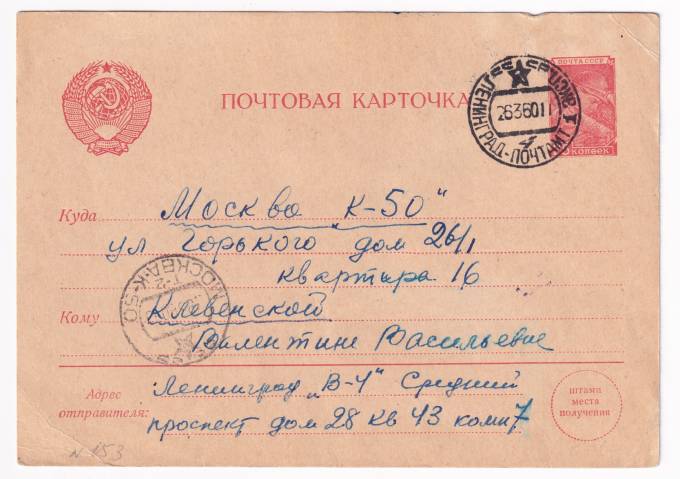 ПОЧТОВАЯ КАРТОЧКА
ПОЧТА СССР
КОПЕЕК
ЛЕНИНГРАД-ПОЧТАМТ
2636011
Куда Москва „К-50"
ул Горького дом 26/1
квартира 16
МОСКВА-К-50
Кому Клевенской
Валентине Васильевне
Адрес отправителя: Ленинград „В-4" Средний
проспект дом 28 кв 43 комн 7
штамп
места
получения
N 153